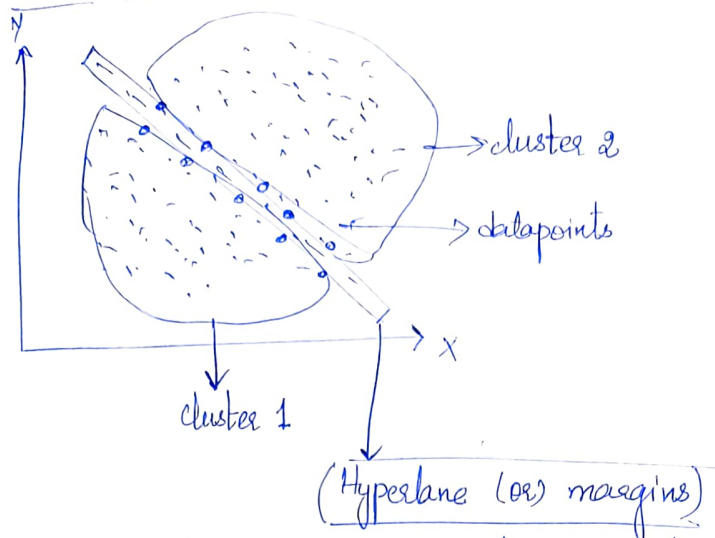 y
cluster 2
datapoints
X
cluster 1
(Hyperlane (or) margins)